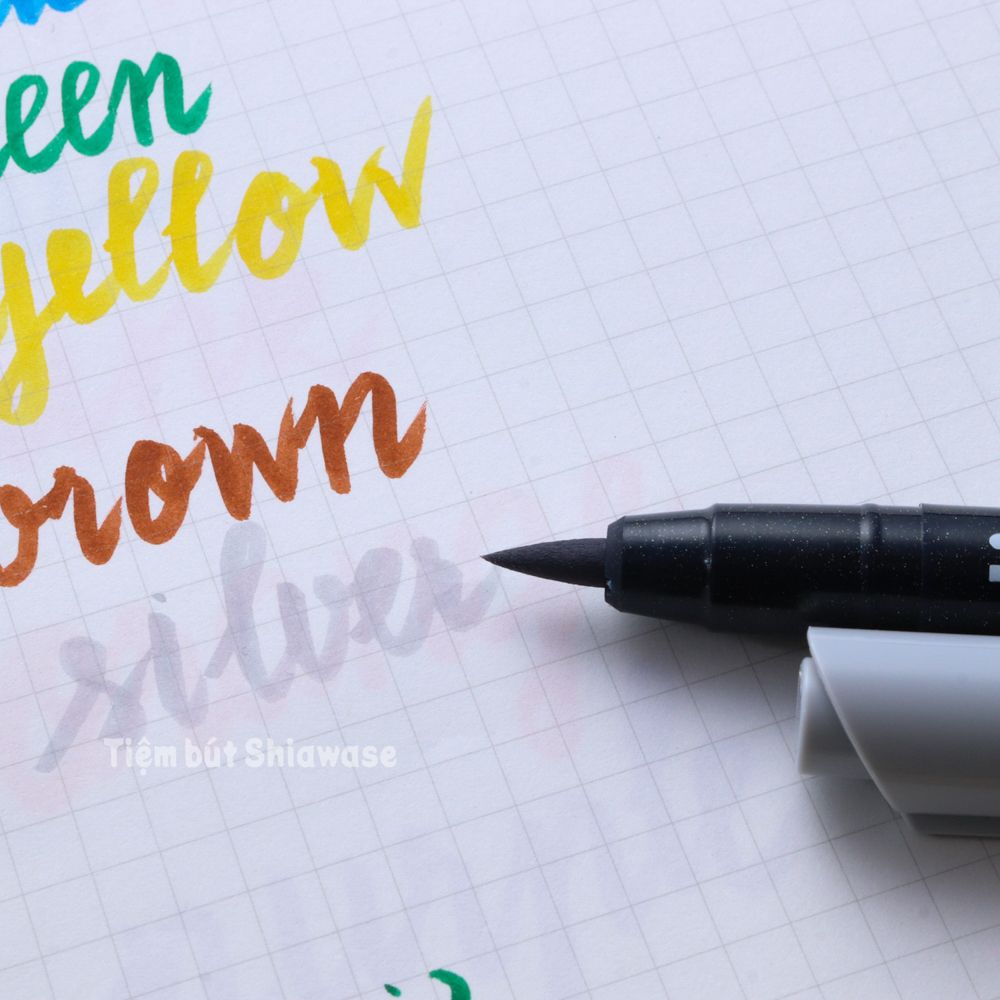 een
yellow
brown
silver
Tiệm bút Shiawase